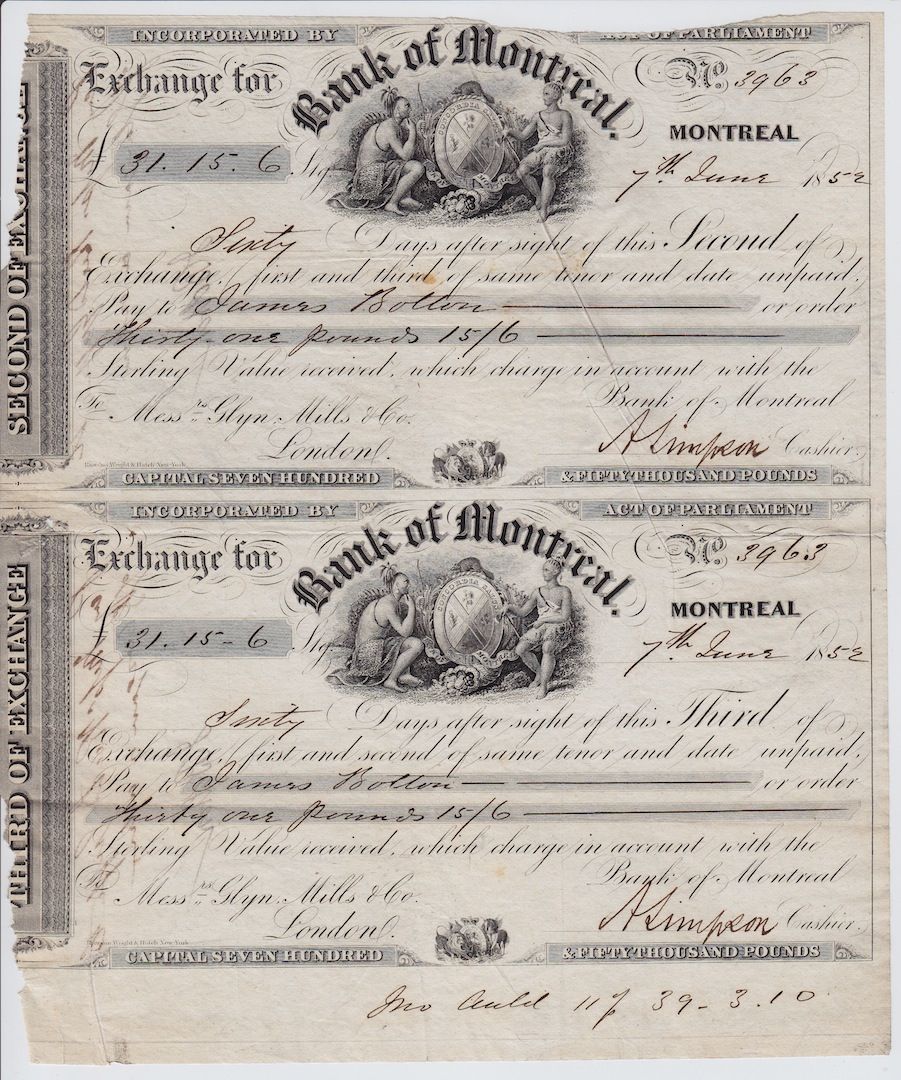 INCORPORATED BY ACT OF PARLIAMENT
Exchange for Bank of Montreal. No. 3963
MONTREAL
£ 31. 15. 6 Stg
CONCORDIA SALUS
7th June 1852
SECOND OF EXCHANGE
Sixty Days after sight of this Second of
Exchange, first and third of same tenor and date unpaid,
Pay to James Bolton or order
Thirty one pounds 15/6
Sterling Value received, which charge in account with the
Bank of Montreal
To Messrs Glyn, Mills & Co.
London. A Simpson Cashier.
Rawdon Wright & Hatch New-York
CAPITAL SEVEN HUNDRED & FIFTY THOUSAND POUNDS
INCORPORATED BY ACT OF PARLIAMENT
Exchange for Bank of Montreal. No. 3963
MONTREAL
£ 31. 15 - 6 Stg
CONCORDIA SALUS
7th June 1852
THIRD OF EXCHANGE
Sixty Days after sight of this Third of
Exchange, first and second of same tenor and date unpaid,
Pay to James Bolton or order
Thirty one pounds 15/6
Sterling Value received, which charge in account with the
Bank of Montreal
To Messrs Glyn, Mills & Co.
London. A Simpson Cashier.
Rawdon Wright & Hatch New-York
CAPITAL SEVEN HUNDRED & FIFTY THOUSAND POUNDS
Jno Auld 39 - 3. 10